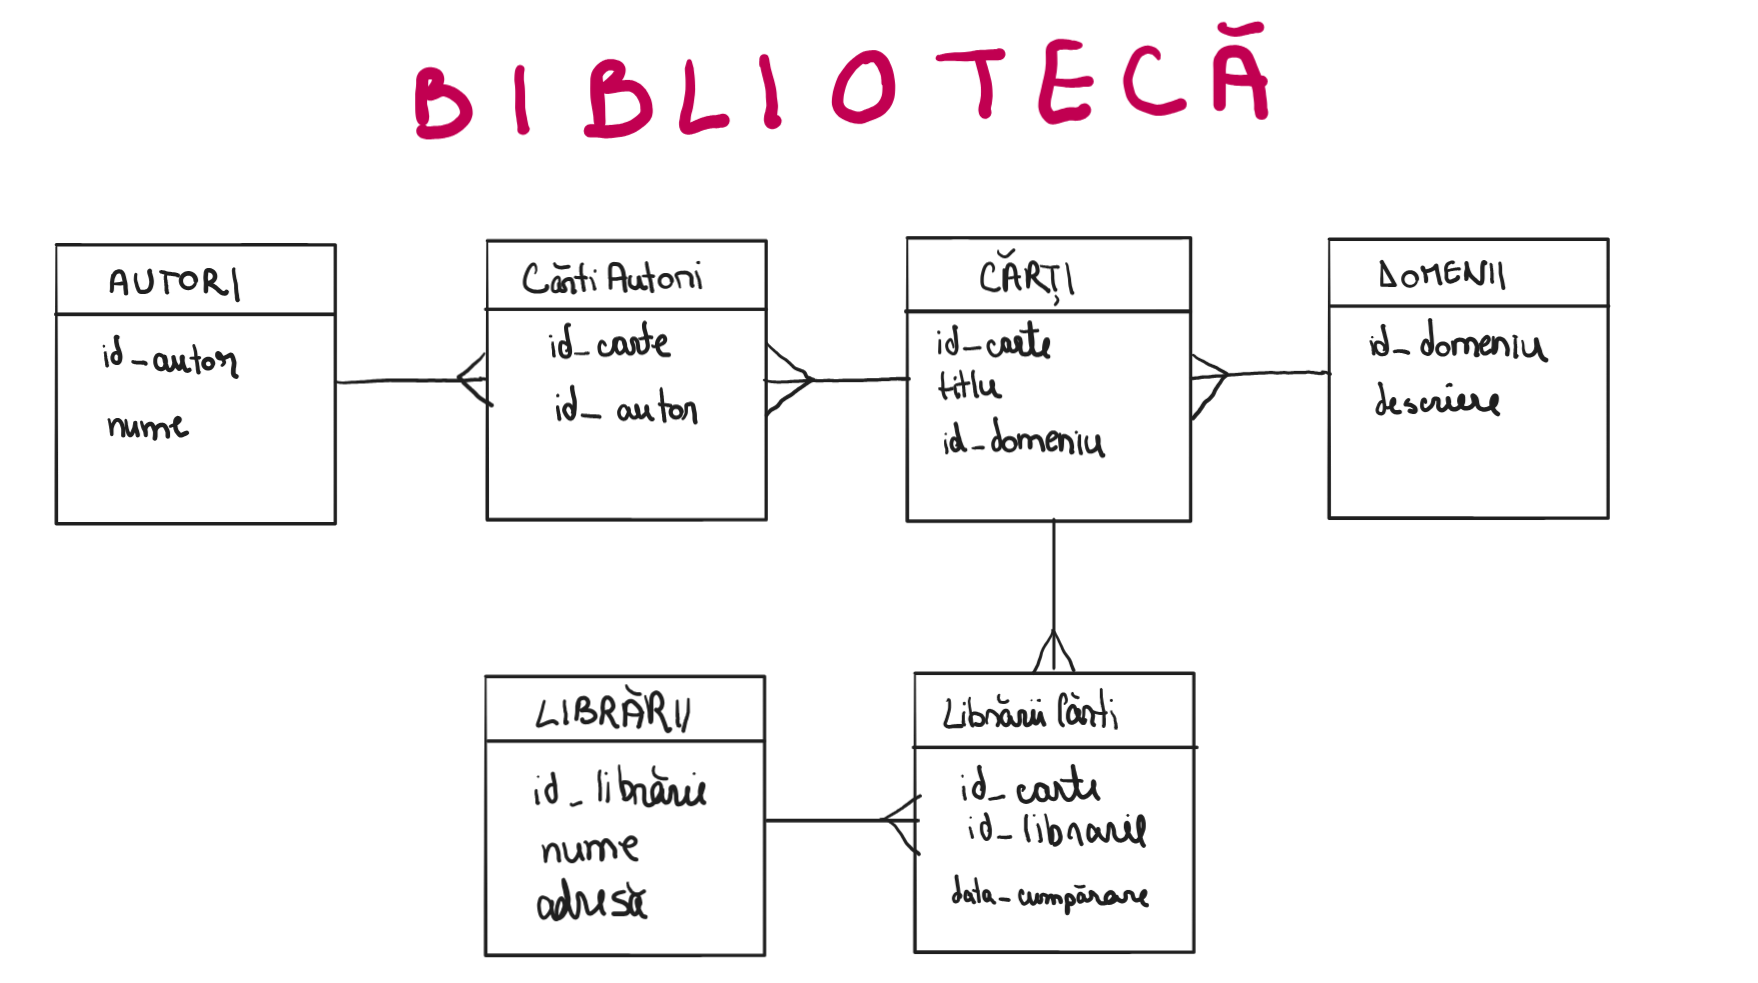 BIBLIOTECĂ
AUTORI
id_autor
nume
Cărti Autori
id_carte
id_autor
CĂRȚI
id_carte
titlu
id_domeniu
DOMENII
id_domeniu
descriere
LIBRĂRII
id_librărie
nume
adresă
Librării Cărti
id_carte
id_librarie
data_cumpărare